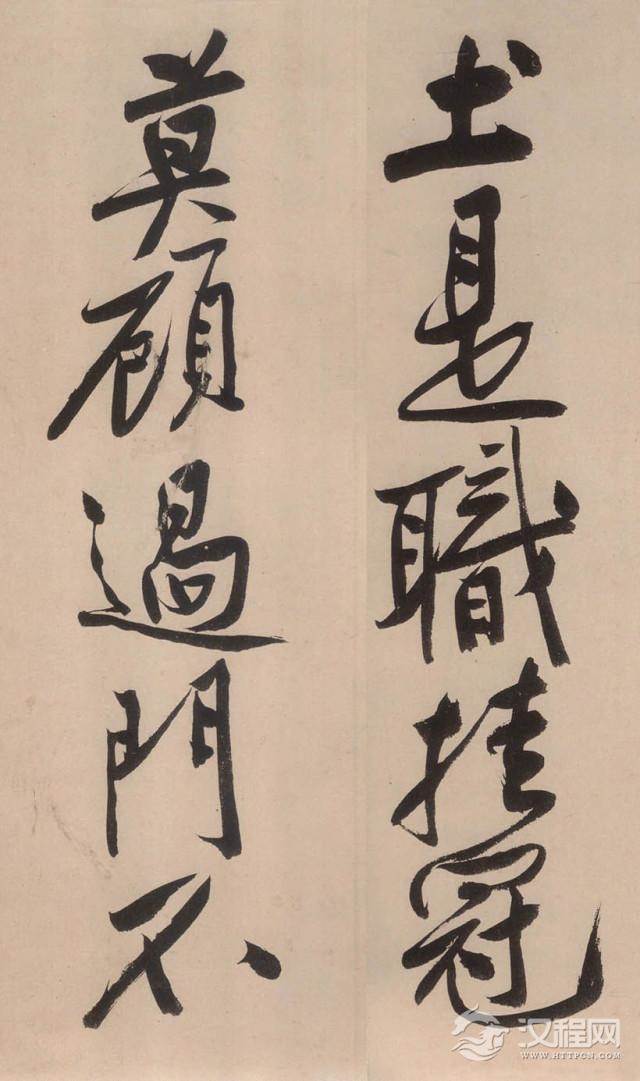 土是職挂冠
莫顧過門不
汉程网
WWW.HTTPCN.COM